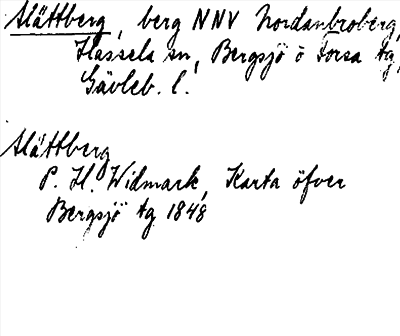 Slättberg, berg NNV Nordanbroberg,
Hassela sn, Bergsjö o Forsa tg,
Gävleb. l.
Slättberg
P. H. Widmark, Karta öfver
Bergsjö tg 1848